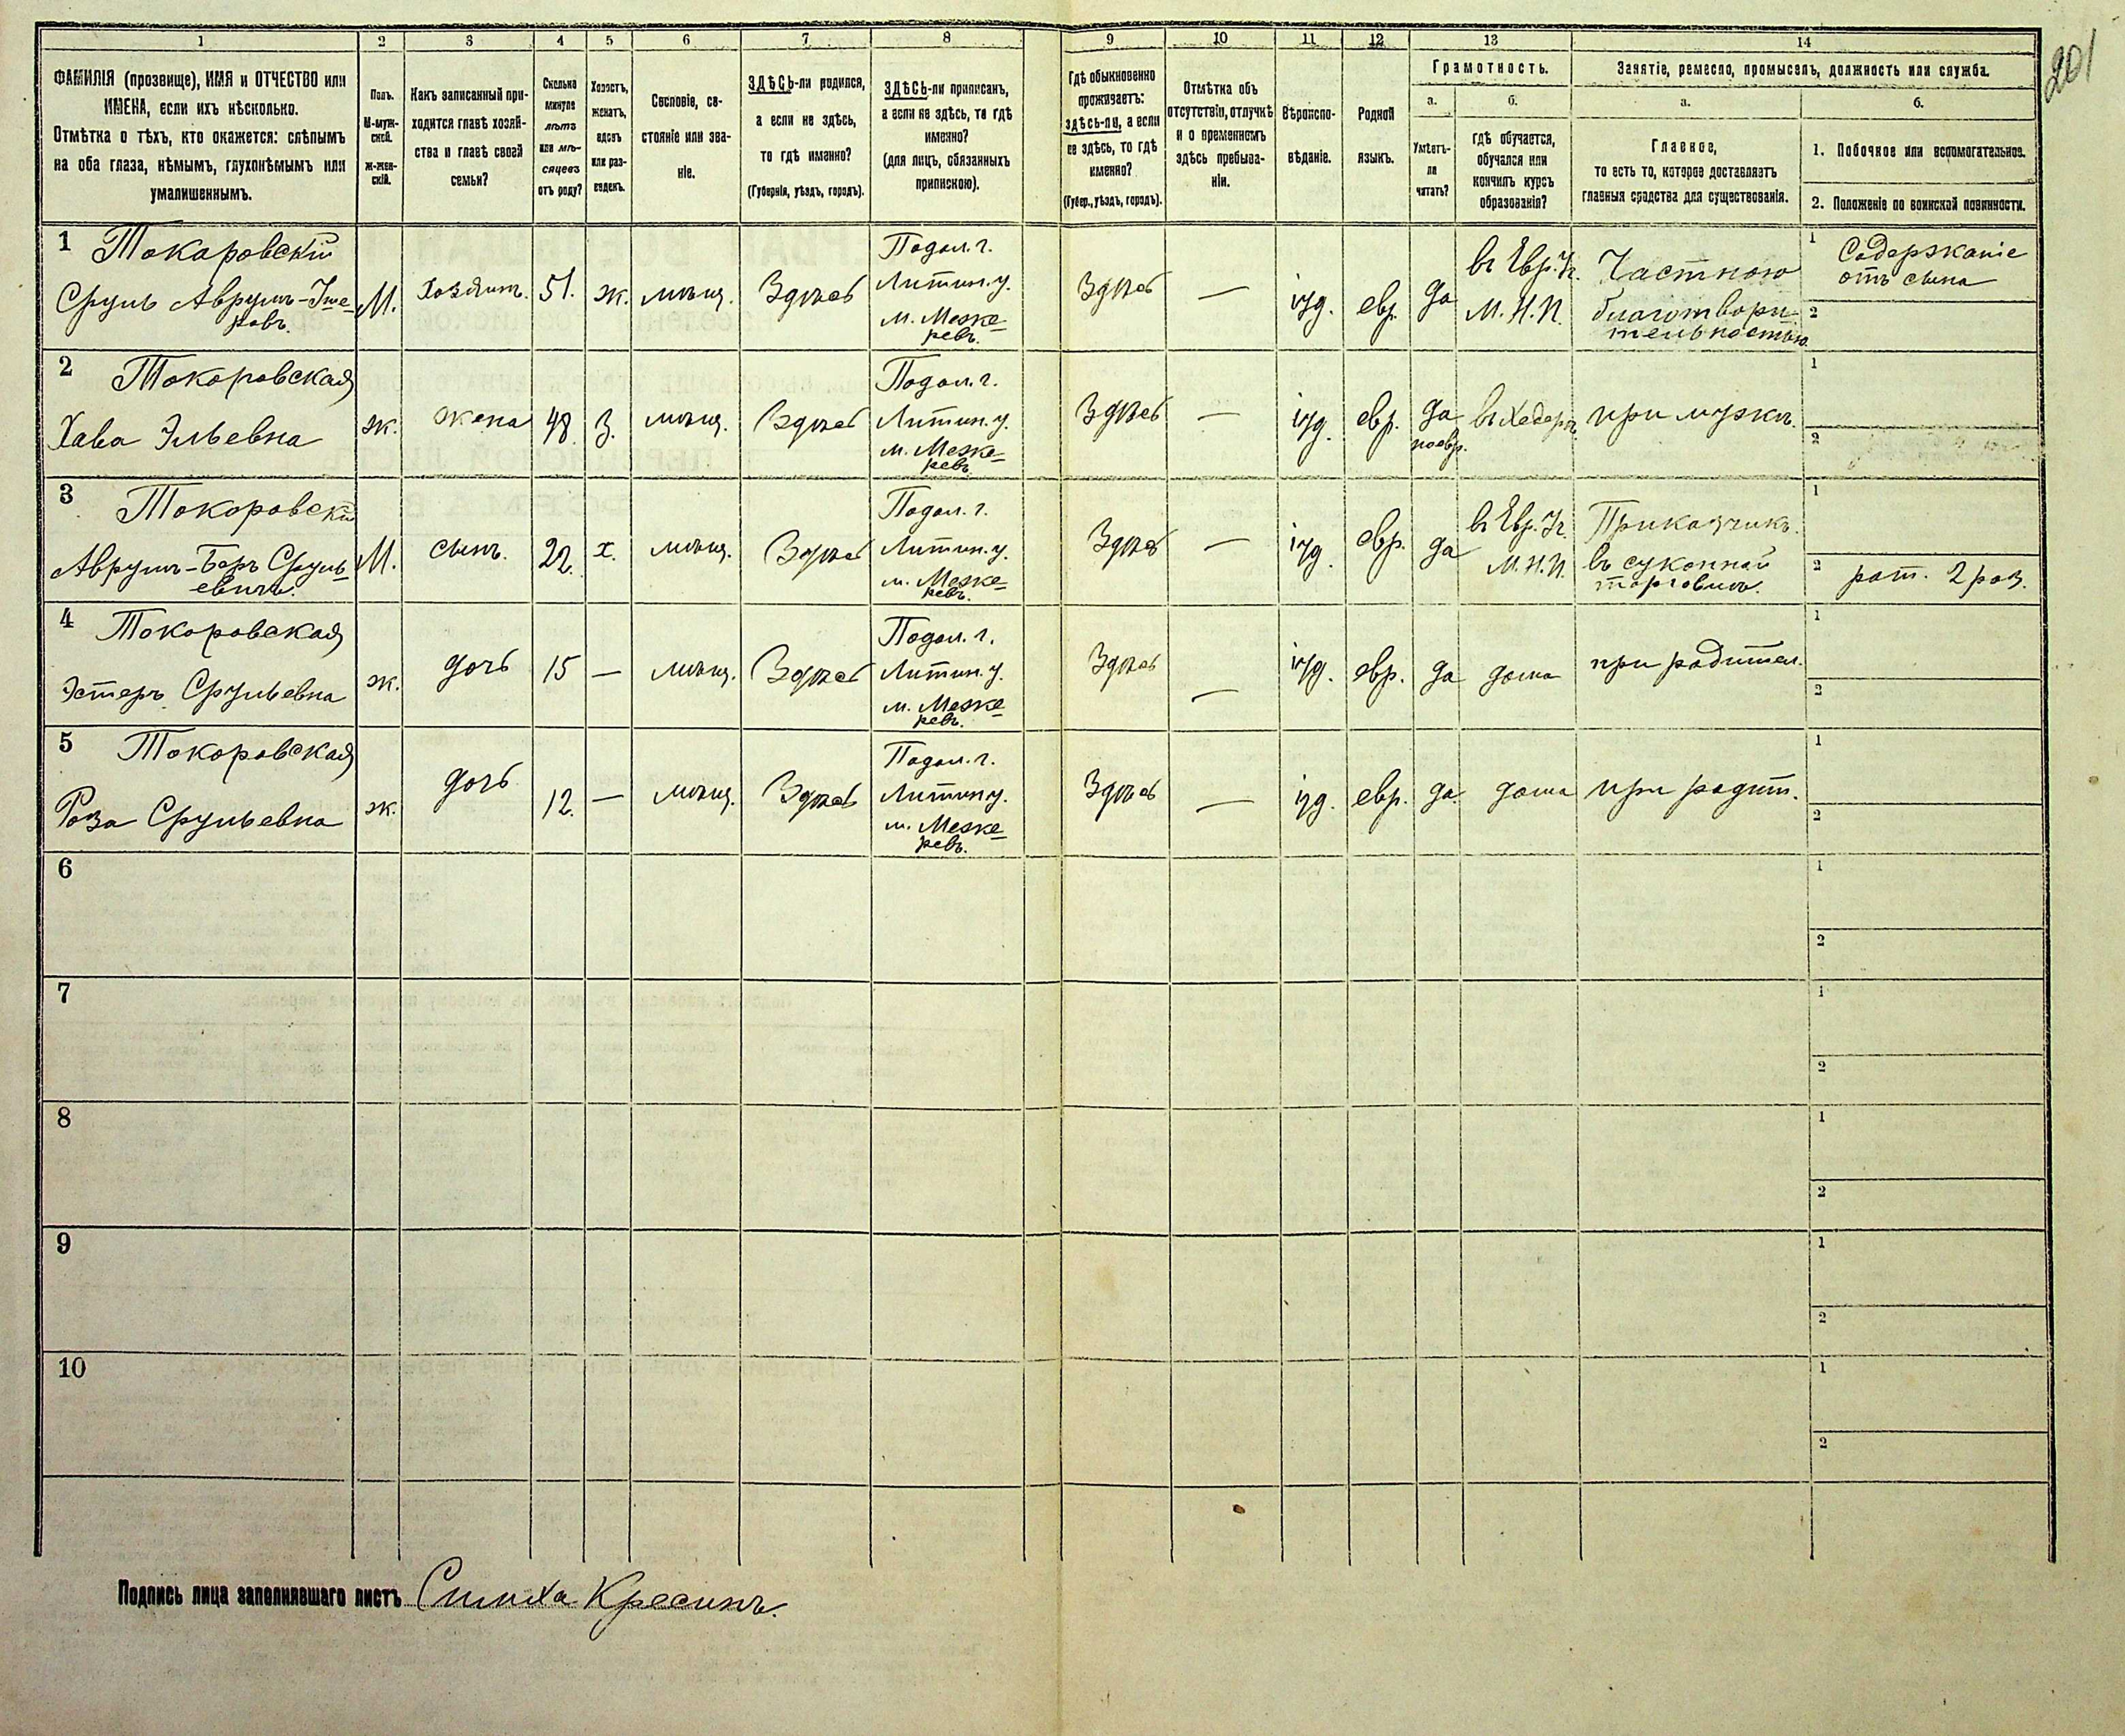 201
1 2 3 4 5 6 7 8 9 10 11 12 13 14
ФАМИЛІЯ (прозвище), ИМЯ и ОТЧЕСТВО или
ИМЕНА, если ихъ нѣсколько.
Отмѣтка о тѣхъ, кто окажется: слѣпымъ
на оба глаза, нѣмымъ, глухонѣмымъ или
умалишеннымъ.
Полъ.
М-муж-
ской.
Ж-жен-
скій.
Какъ записанный при-
ходится главѣ хозяй-
ства и главѣ своей
семьи?
Сколько
минуло
лѣтъ
или мѣ-
сяцевъ
отъ роду?
Холостъ,
женатъ,
вдовъ
или раз-
веденъ.
Сословіе, со-
стояніе или зва-
ніе.
ЗДѢСЬ-ли родился,
а если не здѣсь,
то гдѣ именно?
(Губернія, уѣздъ, городъ).
ЗДѢСЬ-ли приписанъ,
а если не здѣсь, то гдѣ
именно?
(для лицъ, обязанныхъ
припискою).
Гдѣ обыкновенно
проживаетъ:
здѣсь-ли, а если
не здѣсь, то гдѣ
именно?
(Губер., уѣздъ, городъ).
Отмѣтка объ
отсутствіи, отлучкѣ
и о временномъ
здѣсь пребыва-
ніи.
Вѣроиспо-
вѣданіе.
Родной
языкъ.
Грамотность.
а.
Умѣетъ-
ли
читать?
б.
гдѣ обучается,
обучался или
кончилъ курсъ
образованія?
Занятіе, ремесло, промыселъ, должность или служба.
а.
Главное,
то есть то, которое доставляетъ
главныя средства для существованія.
б.
1. Побочное или вспомогательное.
2. Положеніе по воинской повинности.
1 Токаровскій
Сруль Аврумъ-
М.
Хозяинъ.
51.
ж.
мѣщ.
Здѣсь
Подол. г.
Литин. у.
м. Меже-
ревъ.
Здѣсь
—
іуд.
евр.
да
въ Евр. Уч.
М. Н. П.
Частною
благотвори-
тельностью
1 Содержаніе
отъ сына
2
2 Токоровская
Хава Эльевна
ж.
жена
48
З.
мѣщ.
Здѣсь
Подол. г.
Литин. у.
м. Меже-
ревъ.
Здѣсь
—
іуд.
евр.
да
поевр.
въ Хедерѣ
при мужѣ.
1
2
3 Токоровскій
Аврумъ-Беръ Сруль-
евичъ.
М.
сынъ.
22.
х.
мѣщ.
Здѣсь
Подол. г.
Литин. у.
м. Меже-
ревъ.
Здѣсь
—
іуд.
евр.
да
въ Евр. Уч.
М. Н. П.
Приказчикъ.
въ суконной
торговлѣ.
1
2 рат. 2 раз.
4 Токоровская
Эстеръ Срульевна
ж.
дочь
15
—
мѣщ.
Здѣсь
Подол. г.
Литин. у.
м. Меже-
ревъ.
Здѣсь
—
іуд.
евр.
да
дома
при родител.
1
2
5 Токоровская
Роза Срульевна
ж.
дочь
12.
—
мѣщ.
Здѣсь
Подол. г.
Литин у.
м. Меже-
ревъ.
Здѣсь
—
іуд.
евр.
да.
дома
при родит.
1
2
6
1
2
7
1
2
8
1
2
9
1
2
10
1
2
Подпись лица заполнявшаго листъ Симха Кресинъ.